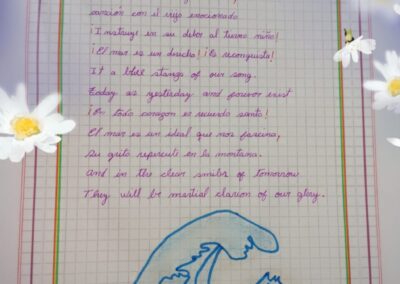 canción con el viejo emocionado
¡Instruye en su deber al tierno niño!
¡El mar es un derecho! ¡Es reconquista!
It a blue stanza of our song.
Today as yesterday and forever exist
¡En todo corazon es recuerdo santo!
El mar es un ideal que nos fascina,
Su grito repercute en la montana.
And in the clear smiler of tomorrow
They will be martial clarion of our glory.